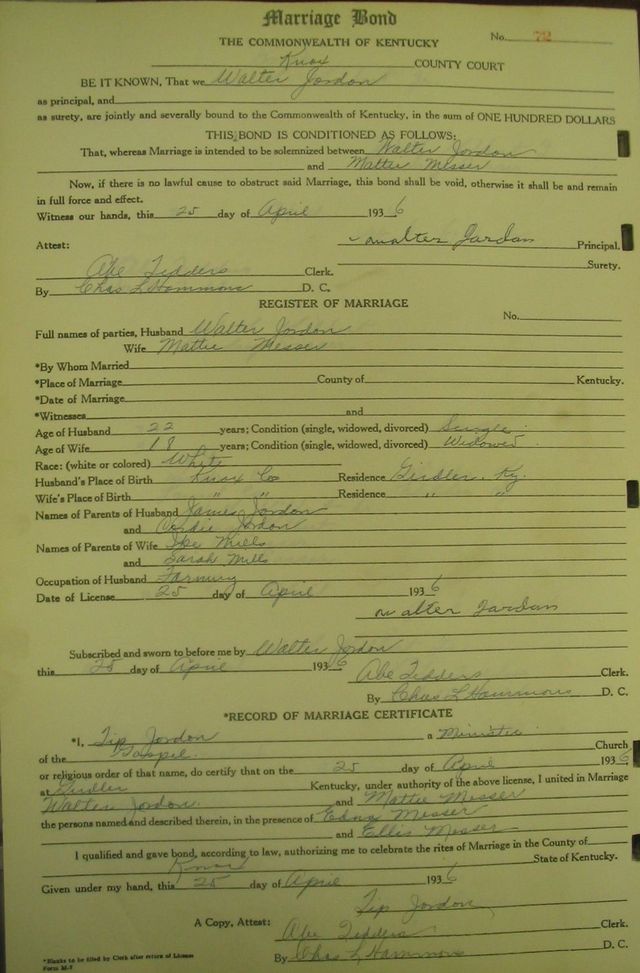 Marriage Bond
No. 712
THE COMMONWEALTH OF KENTUCKY
Knox COUNTY COURT
BE IT KNOWN, That we Walter Jordon
as principal, and
as surety, are jointly and severally bound to the Commonwealth of Kentucky, in the sum of ONE HUNDRED DOLLARS
THIS BOND IS CONDITIONED AS FOLLOWS:
That, whereas Marriage is intended to be solemnized between Walter Jordon
and Mattie Messer
Now, if there is no lawful cause to obstruct said Marriage, this bond shall be void, otherwise it shall be and remain
in full force and effect.
Witness our hands, this 25 day of April 1936
Attest: Walter Jordan Principal.
Surety.
Abe Tedders Clerk.
By Chas L Hammons D. C.
REGISTER OF MARRIAGE
No.
Full names of parties, Husband Walter Jordon
Wife Mattie Messer
*By Whom Married
*Place of Marriage County of Kentucky.
*Date of Marriage
*Witnesses and
Age of Husband 22 years; Condition (single, widowed, divorced) Single
Age of Wife 18 years; Condition (single, widowed, divorced) Widowed
Race: (white or colored) White
Husband's Place of Birth Knox Co Residence Girdler, Ky.
Wife's Place of Birth " " Residence " "
Names of Parents of Husband James Jordon
and Jordon
Names of Parents of Wife Ike Mills
and Sarah Mills
Occupation of Husband Farming
Date of License 25 day of April 1936
Walter Jardan
Subscribed and sworn to before me by Walter Jordon
this 25 day of April 1936
Abe Tedders Clerk.
By Chas L Hammons D. C.
*RECORD OF MARRIAGE CERTIFICATE
*I, Tip Jordon a Minister
of the Gospel Church
or religious order of that name, do certify that on the 25 day of April 1936
at Girdler Kentucky, under authority of the above license, I united in Marriage
Walter Jordon and Mattie Messer
the persons named and described therein, in the presence of Edna Messer
and Ellis Messer
I qualified and gave bond, according to law, authorizing me to celebrate the rites of Marriage in the County of
Knox State of Kentucky.
Given under my hand, this 25 day of April 1936
Tip Jordon
A Copy, Attest: Abe Tedders Clerk.
By Chas L Hammons D. C.
*Blanks to be filled by Clerk after return of License
Form M-7